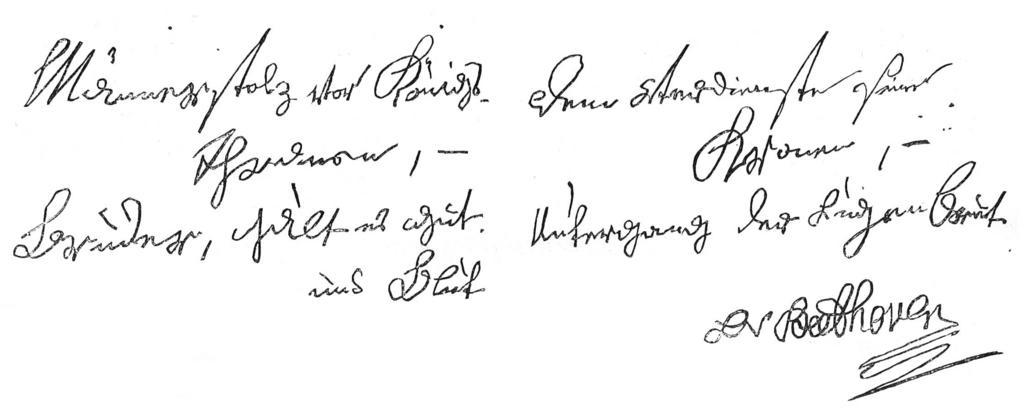 Männerstolz vor Königs-
Thronen, –
Brüder, gält es Gut
und Blut
Dem Verdienste seine
Kronen, –
Untergang der Lügenbrut.
LvBeethoven